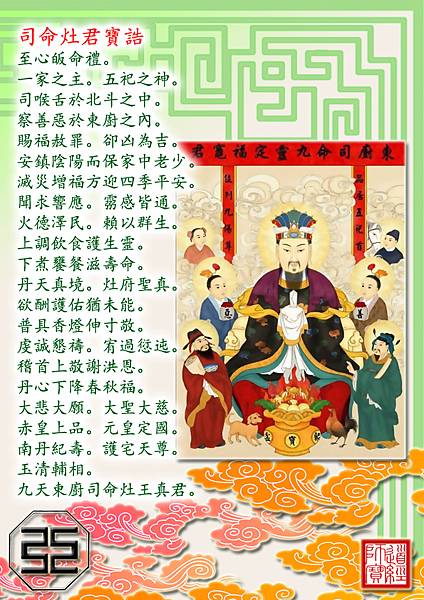 司命灶君寶誥
至心皈命禮。
一家之主。五祀之神。
司喉舌於北斗之中。
察善惡於東廚之內。
賜福赦罪。卻凶為吉。
安鎮陰陽而保家中老少。
滅災增福方迎四季平安。
聞求響應。靈感皆通。
火德澤民。賴以群生。
上調飲食護生靈。
下煮饔餐滋壽命。
丹天真境。灶府聖真。
欲酬護佑猶未能。
普具香燈伸寸敬。
虔誠懇禱。宥過愆迍。
稽首上敬謝洪恩。
丹心下降春秋福。
大悲大願。大聖大慈。
赤皇上品。元皇定國。
南丹紀壽。護宅天尊。
玉清輔相。
九天東廚司命灶王真君。
東廚司命九靈定福竈君
品居五祀首
位列九陽尊
善
惡
道經師寶